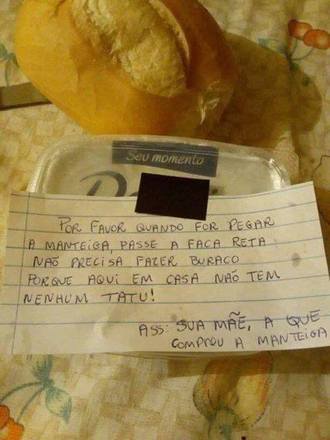 Seu momento
POR FAVOR QUANDO FOR PEGAR
A MANTEIGA, PASSE A FACA RETA
NÃO PRECISA FAZER BURACO
PORQUE AQUI EM CASA NÃO TEM
NENHUM TATU!
ASS: SUA MÃE, A QUE
COMPROU A MANTEIGA